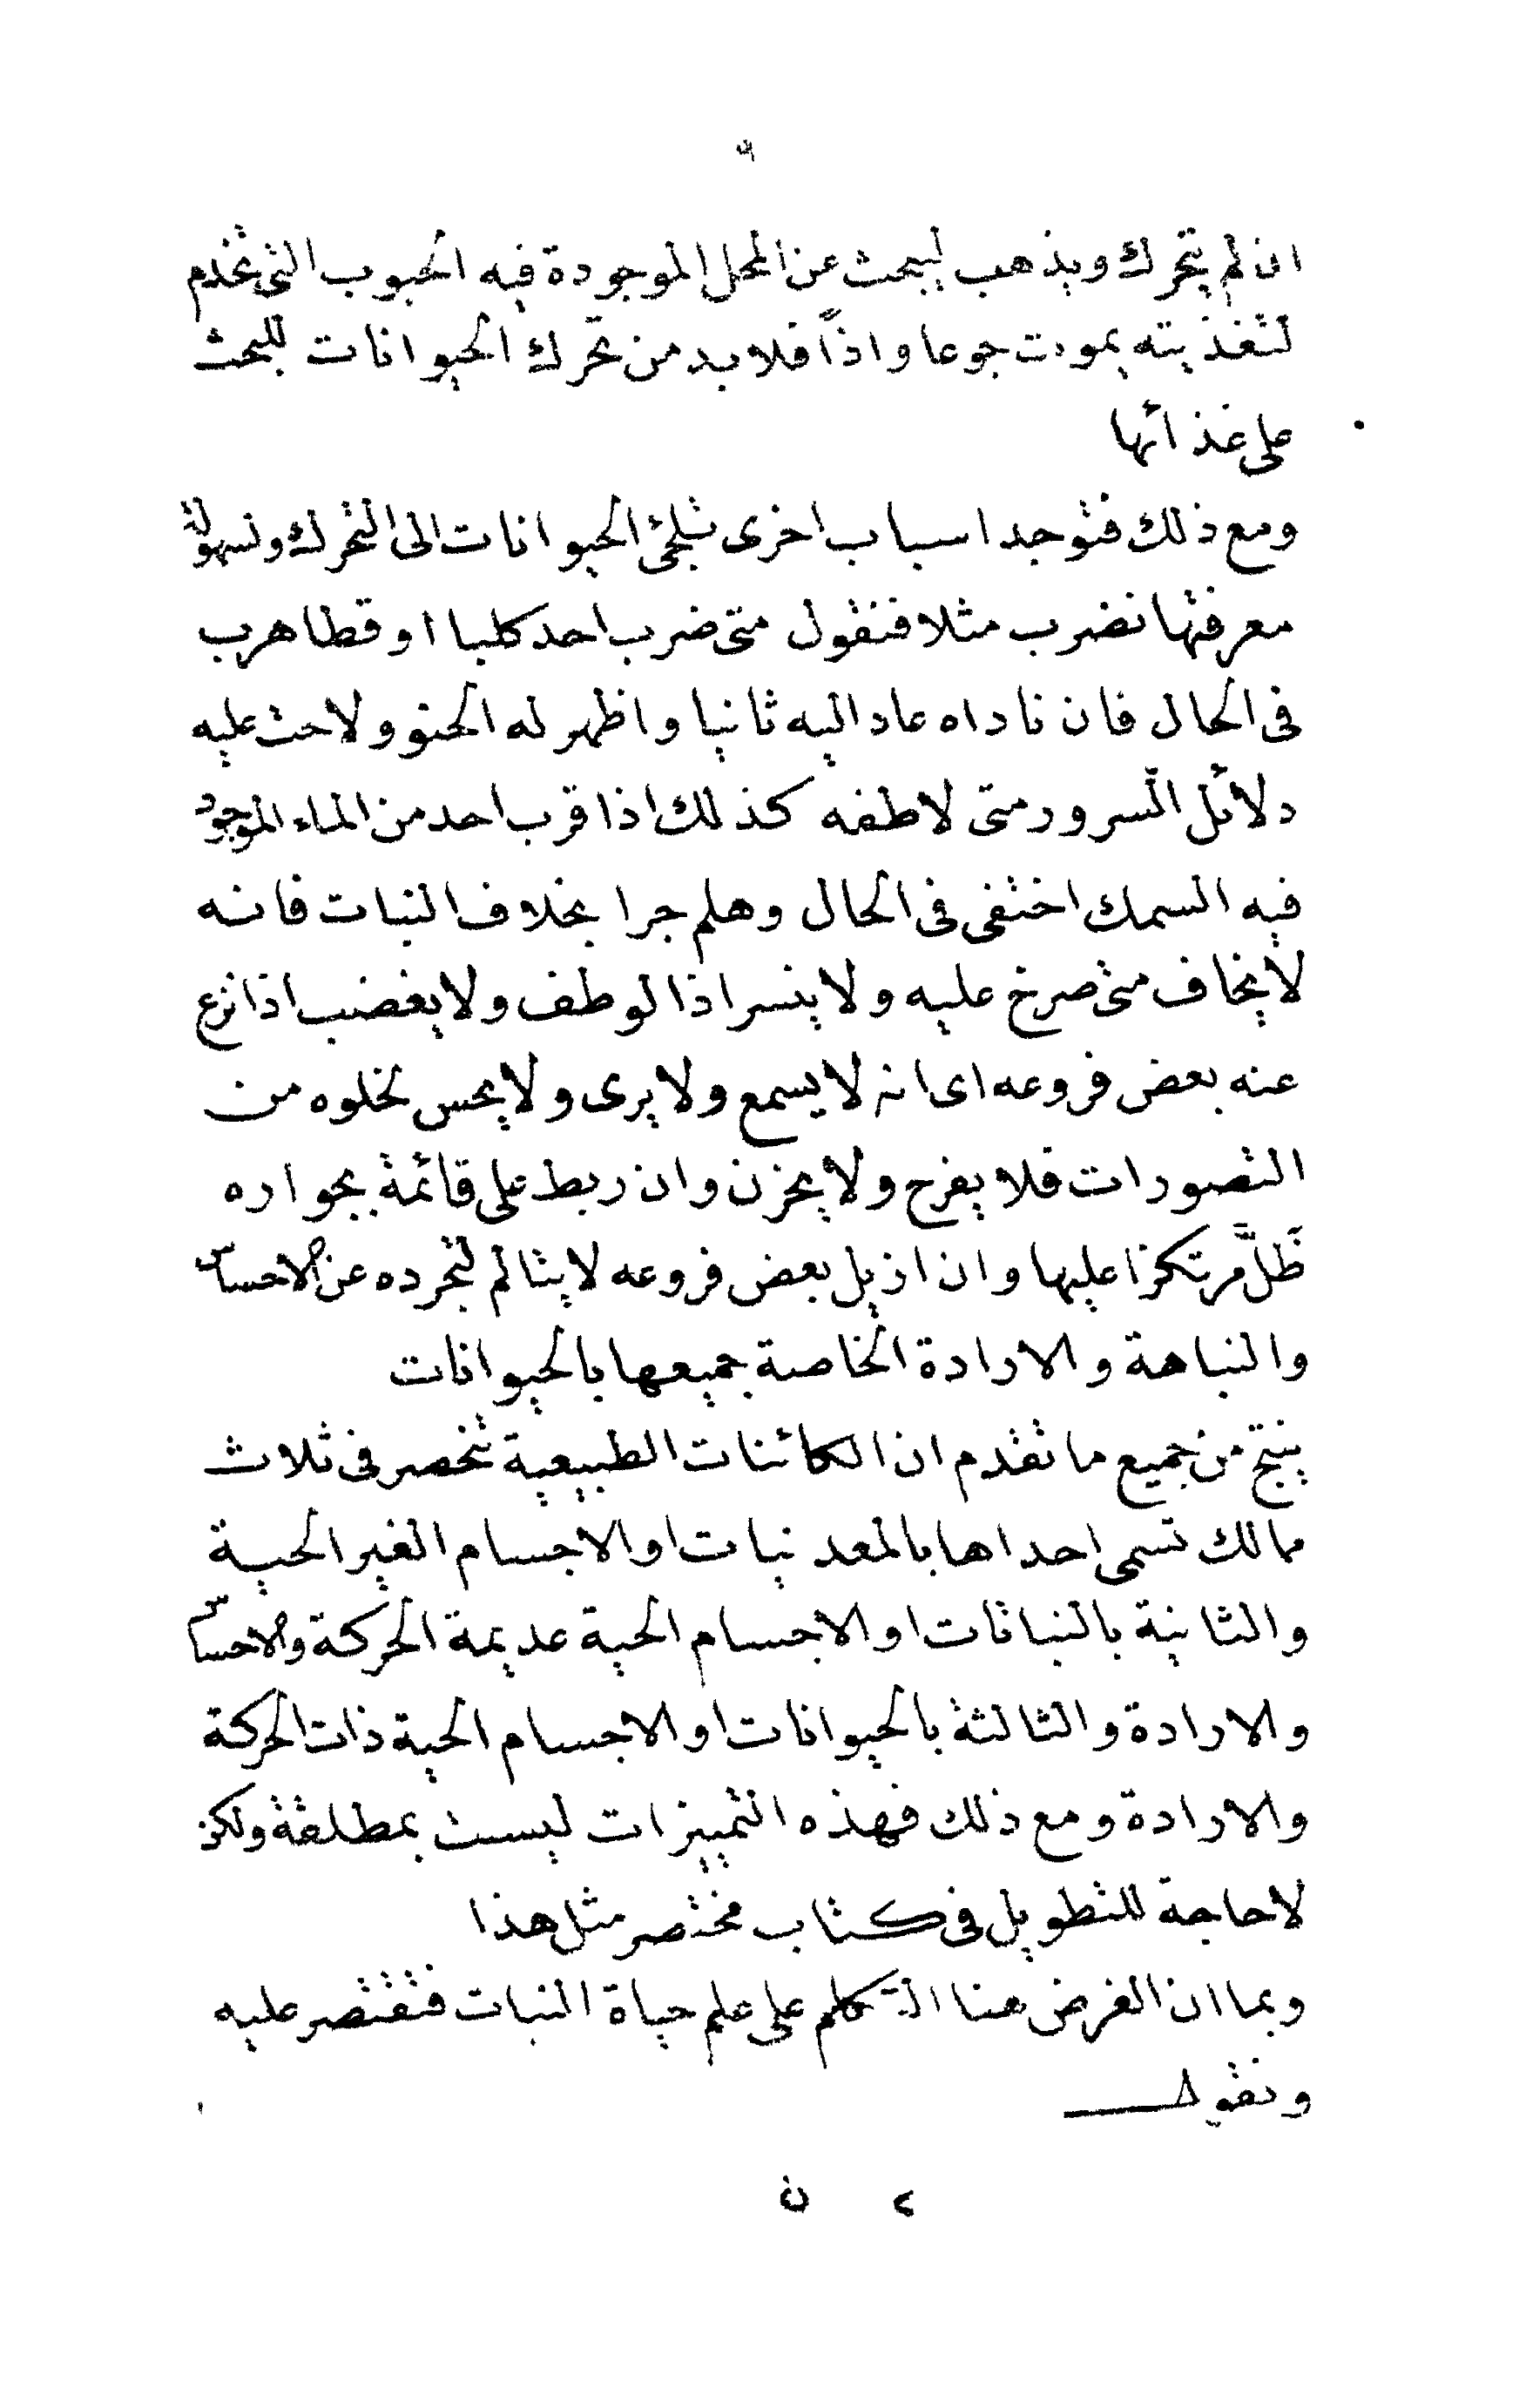 ٩
ان لم يتحرك ويذهب ليبحث عن المحل الموجودة فيه الحبوب التى تخدم
لتغذيته يموت جوعا واذاً فلا بد من تحرك الحيوانات للبحث
على غذائها
ومع ذلك فتوجد اسباب اخرى تلجئ الحيوانات الى التحرك ولسهولة
معرفتها نضرب مثلا فنقول متى ضرب احد كلبا او قطا هرب
فى الحال فان ناداه عاد اليه ثانيا واظهر له الحنو ولاحت عليه
دلائل السرور متى لاطفه كذلك اذا قرب احد من الماء الموجود
فيه السمك اختفى فى الحال وهلم جرا بخلاف النبات فانه
لا يخاف متى صرخ عليه ولا ينسر اذا لوطف ولا يغضب اذا نزع
عنه بعض فروعه اى انه لا يسمع ولا يرى ولا يحس لخلوه من
التصورات فلا يفرح ولا يحزن وان ربط على قائمة بجواره
ظَلَّ مرتكزا عليها وان ازيل بعض فروعه لا يتالم لتجرده عن الاحساس
والنباهة والارادة الخاصة جميعها بالحيوانات
ينتج من جميع ما تقدم ان الكائنات الطبيعية تنحصر فى ثلاث
ممالك تسمى احداها بالمعدنيات او الاجسام الغير الحية
والثانية بالنباتات او الاجسام الحية عديمة الحركة والاحساس
والارادة والثالثة بالحيوانات او الاجسام الحية ذات الحركة
والارادة ومع ذلك فهذه التمييزات ليست بمطلقة ولكن
لا حاجة للتطويل فى كتاب مختصر مثل هذا
وبما ان الغرض هنا التكلم على علم حياة النبات فنقتصر عليه
ونقول
٢ ن